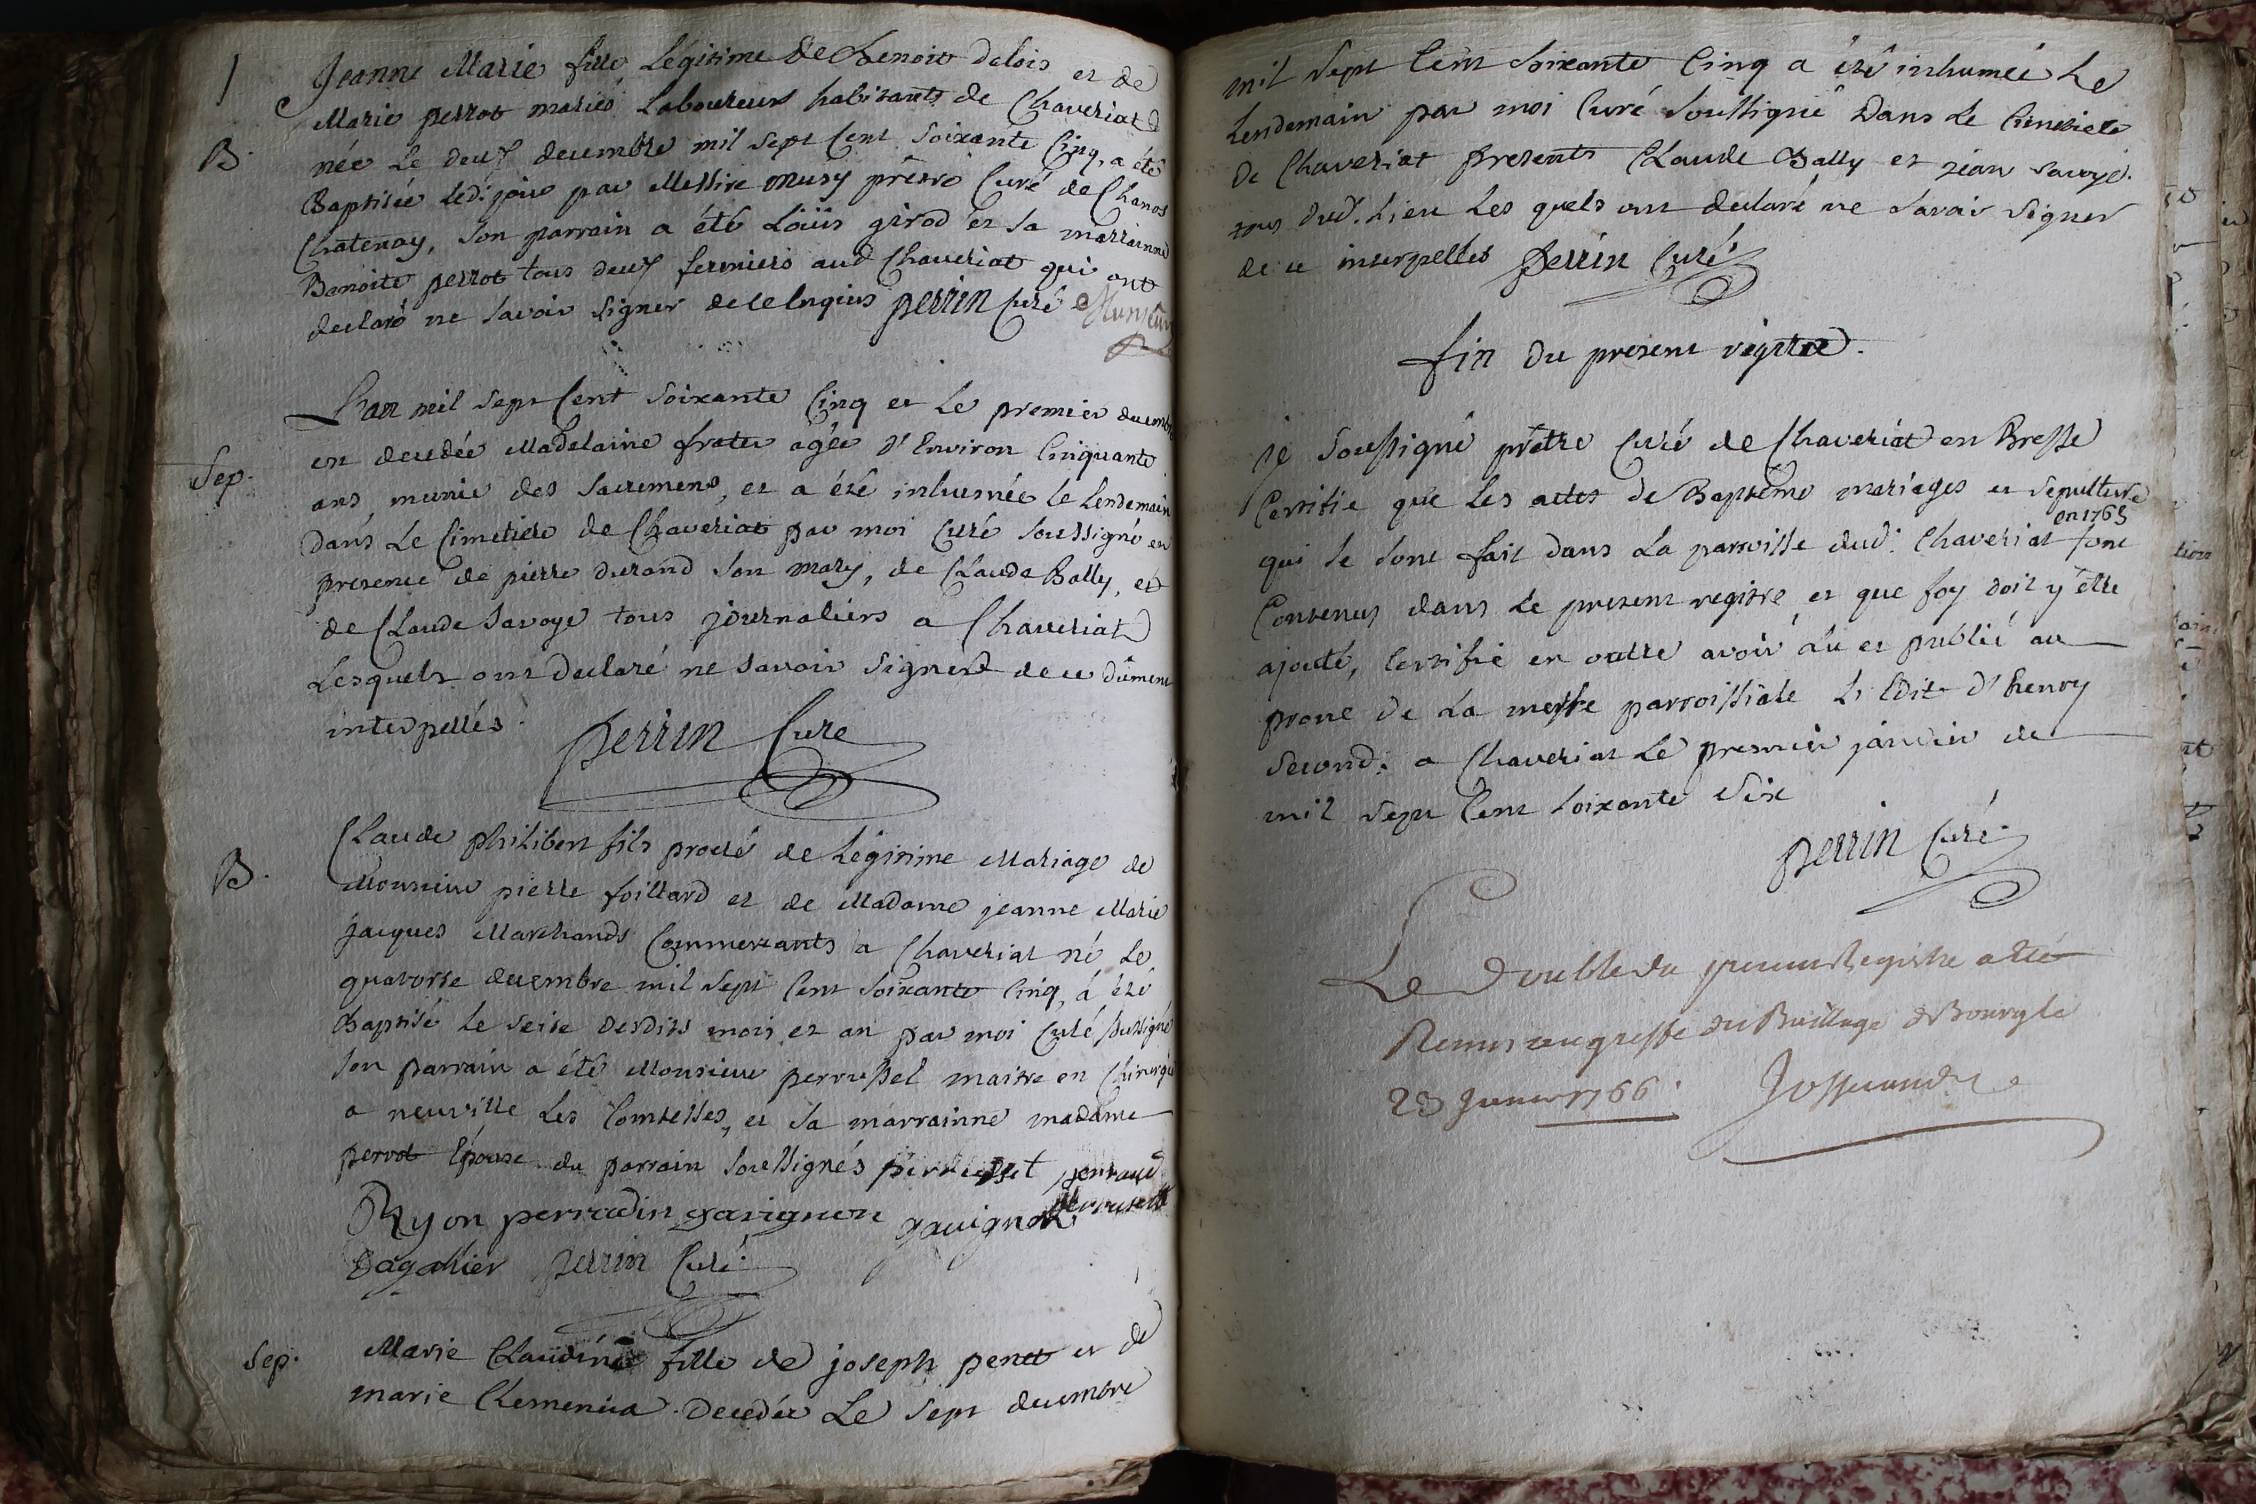 Jeanne Marie fille Légitime de benoit delois et de
Marie perrot mariés Laboureurs habitants de Chaveriat
B.
née Le deux decembre mil sept Cent Soixante Cinq, a été
Baptisée led. jour par Messire musy prêtre Curé de Chanos
Chatenay, son parrain a été Loüis girod et sa marrainne
Benoite perrot tous deux fermiers aud Chaveriat qui ont
declaré ne Savoir signer de ce Enquis perrin Curé
L'an mil sept Cent soixante Cinq et Le premier decembre
Sep.
est decedée Madelaine frater agée d'Environ Cinquante
ans, munie des Sacremens, et a été inhumée le Lendemain
dans Le Cimetiere de Chaveriat par moi Curé Soussigné en
presence de pierre durand son mary, de Claude Bally, et
de Claude Savoye tous journaliers a Chaveriat
Lesquels ont declaré ne savoir signer de ce dûment
interpellés.
perrin Curé
B.
Claude philibert fils procréé de Légitime Mariage de
Monsieur pierre foillard et de Madame jeanne Marie
jacques Marchands Commerçants a Chaveriat né Le
quatorse decembre mil sept Cent soixante Cinq, a été
Baptisé Le seise desdits mois et an par moi Curé soussigné
son parrain a été Monsieur perrussel maitre en Chirurgie
a neuville Les Comtesses, et sa marrainne madame
perrot Epouse du parrain soussignés perrussel
Ryon perradin gavignon gavignon
Dagallier perrin Curé
Sep.
Marie Claudine fille de joseph penet et de
marie Clemencia decedée Le sept decembre
mil sept Cent soixante Cinq a été inhumée Le
Lendemain par moi Curé Soussigné Dans Le Cimetiere
de Chaveriat presents Claude Bally et jean savoye
tous dud. Lieu Les quels ont declaré ne savoir signer
de ce interpellés perrin Curé
fin du present régitre.
je Soussigné prêtre Curé de Chaveriat en Bresse
Certifie que Les actes de Baptême mariages et sepulture
en 1765
qui se sont fait dans La parroisse dud. Chaveriat sont
Contenus dans Le present registre et que foy doit y être
ajouté, Certifie en outre avoir Lu et publié au
prone de La messe parroissiale L'Edit d'henry
second: a Chaveriat Le premier janvier de
mil sept Cent soixante Six
perrin Curé
Le Double du present Registre a été
Remis au greffe du Baillage de Bourg le
23 Janvier 1766.